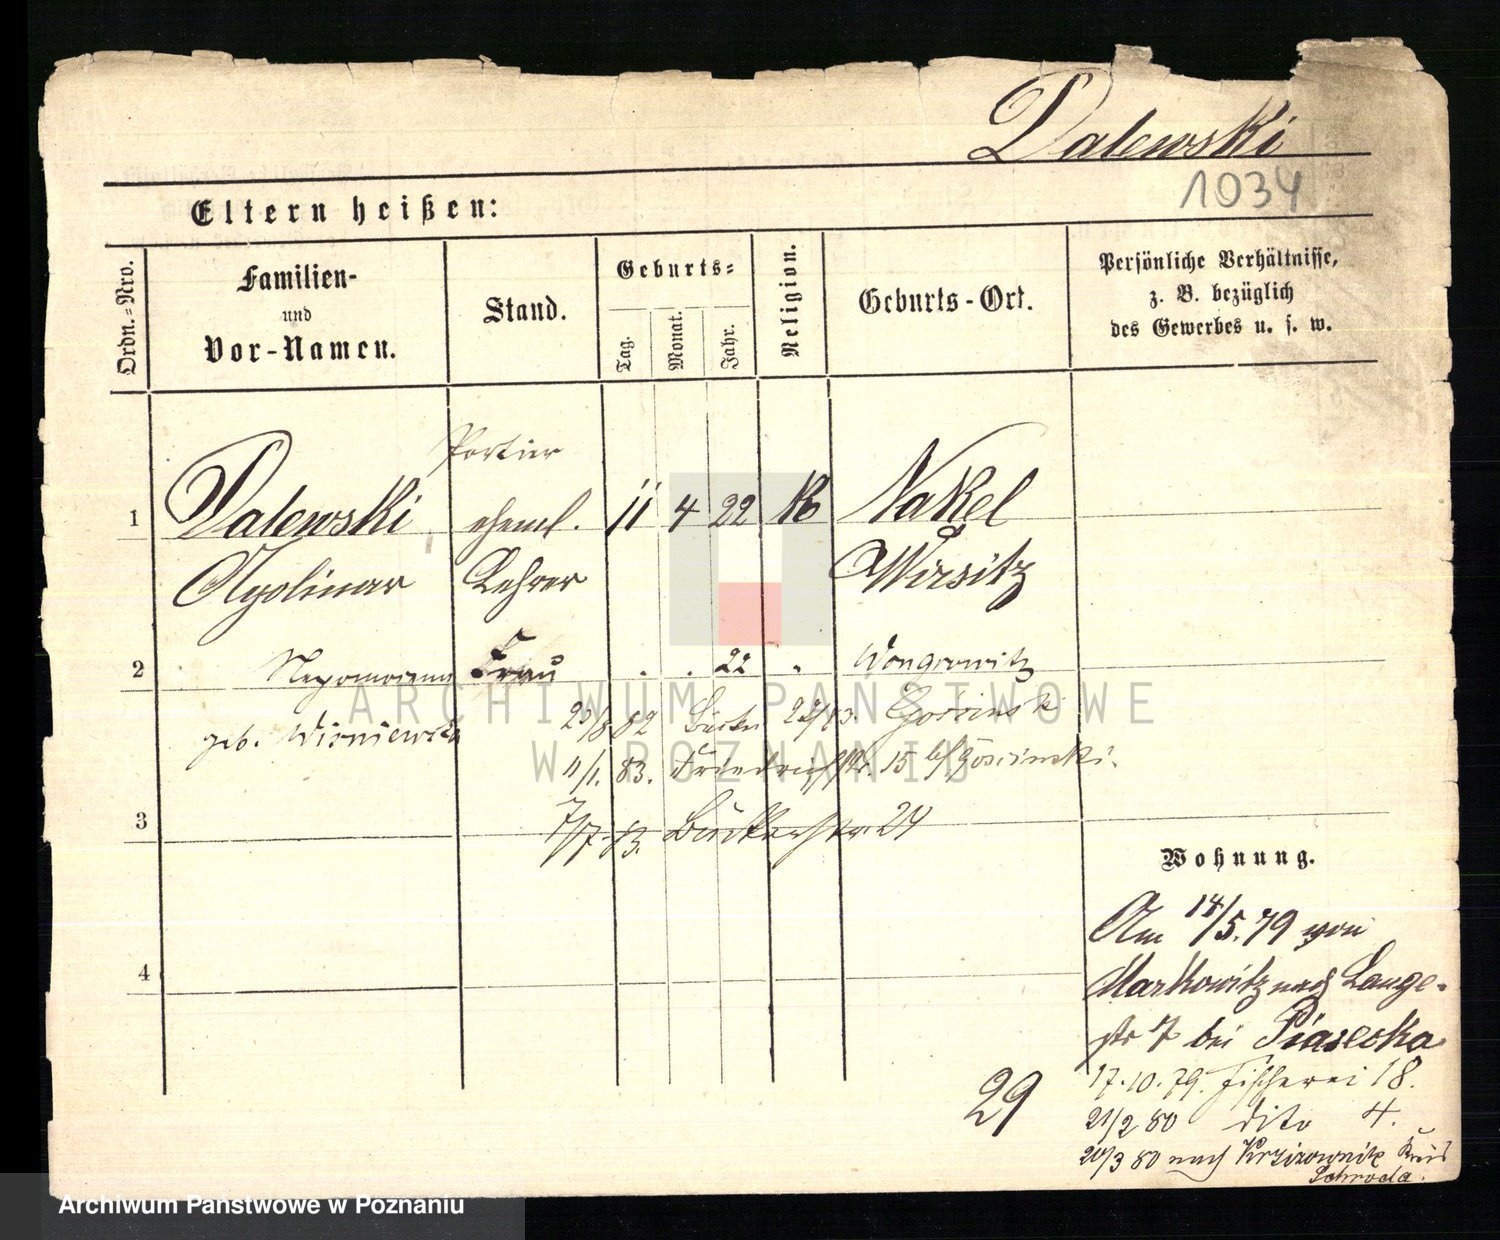 Dalewski
1034
Eltern heißen:
Ordn.-Nro.
Familien-
und
Vor-Namen.
Stand.
Geburts-
Tag.
Monat.
Jahr.
Religion.
Geburts-Ort.
Persönliche Verhältnisse,
z. B. bezüglich
des Gewerbes u. s. w.
Portier
1 Dalewski eheml. 11 4 22 K Nakel
Apolinar Lehrer Wirsitz
2 Nepomocena Frau . . 22 " Wongrowitz
geb. Wisniewska 23/8 82 22/ 13. Gościnski
11/1. 83. Friedrichstr. 15 b/ Gościnski.
3 7/7. 83. Bäckerstr 24
4
Wohnung.
Am 14/5. 79 von
Markowitz nach Lange-
str 7 bei Piasecka
17. 10. 79. Fischerei 18.
21/2 80 dito 4.
20/3 80 nach Krzizownik Kreis
Schroda.
29
ARCHIWUM PAŃSTWOWE
W POZNANIU
Archiwum Państwowe w Poznaniu